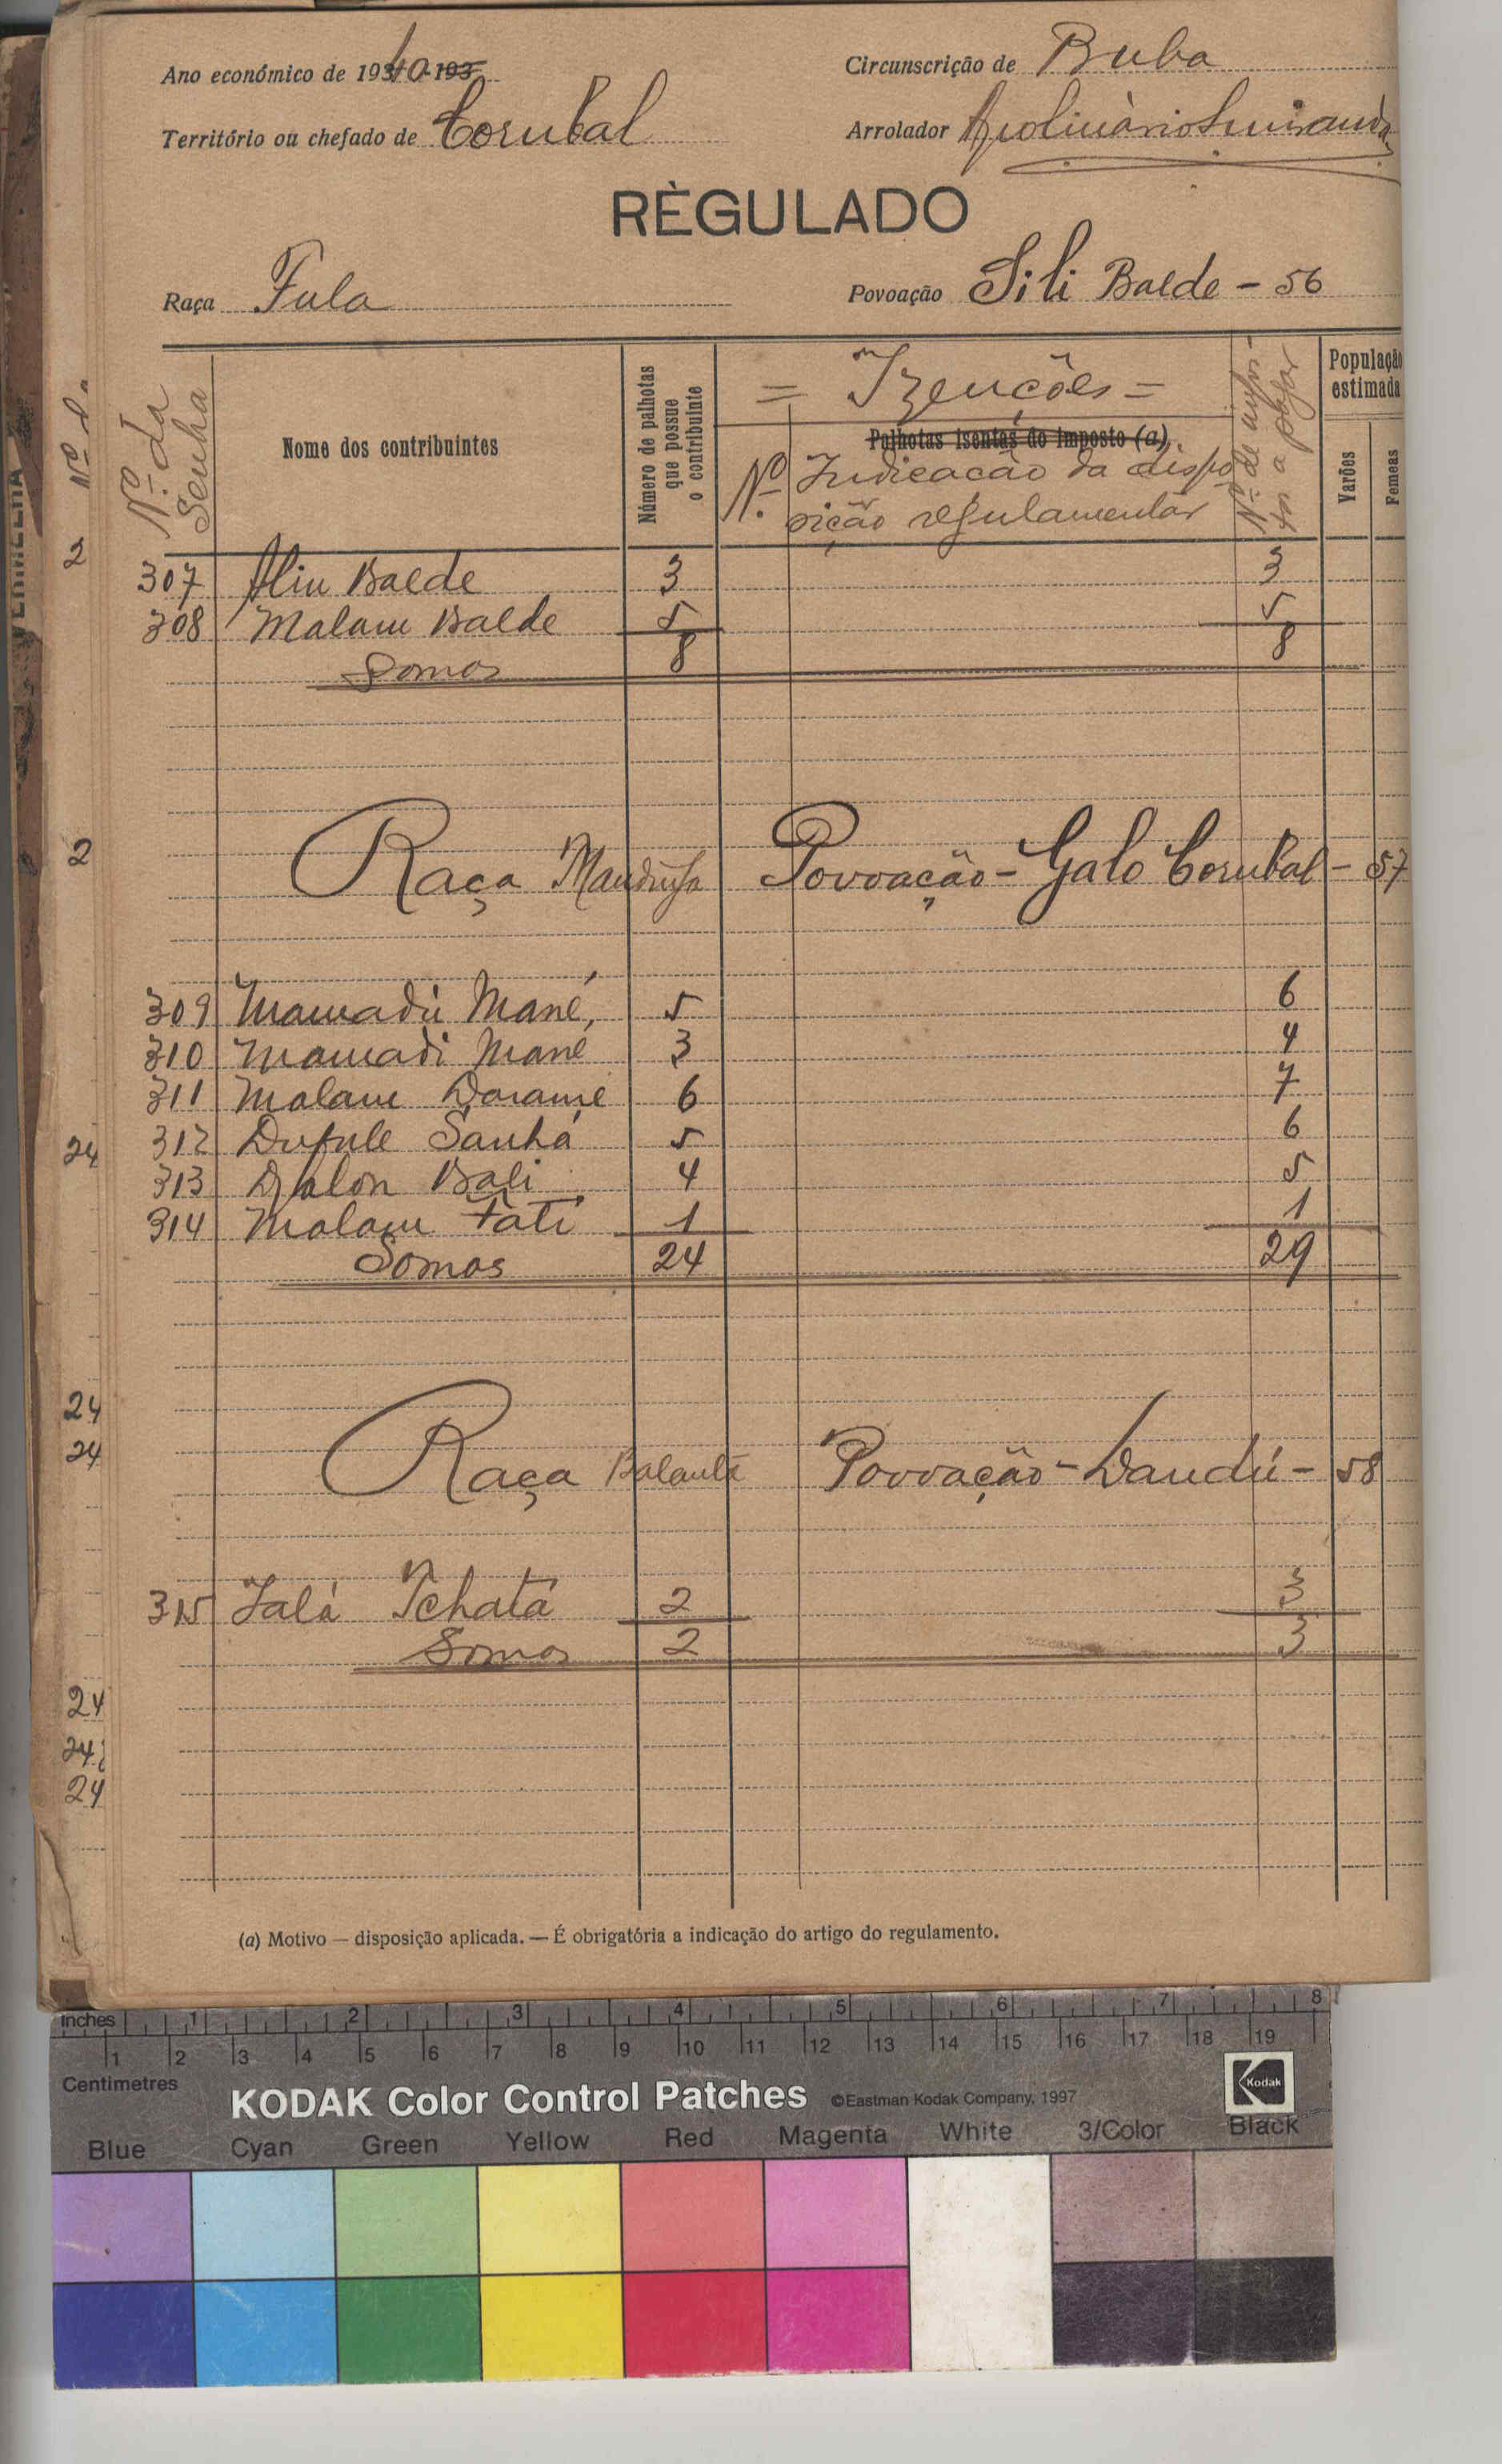 Ano económico de 1940-193
Circunscrição de Buba
Território ou chefado de Corubal
Arrolador Apolinário
RÈGULADO
Raça Fula
Povoação Sili Balde - 56
Nº da Senha
Nome dos contribuintes
Número de palhotas que possue o contribuinte
= Izenções =
Palhotas isentas do imposto (a)
Nº Indicacão da dispo
sição regulamentar
Nº de
a pagar
População estimada
Varões
Femeas
307 Aliu Balde 3 3
308 Malam Balde 5 5
Somas 8 8
Raça Mandinga Povoação - Galo Corubal - 57
309 Mamadú Mané, 5 6
310 Mamadi Mané 3 4
311 Malam Darame 6 7
312 Sanhá 5 6
313 Djalon Bali 4 5
314 Malam Fati 1 1
Somas 24 29
Raça Balanta Povoação - Dandú - 58
315 Ialá Tchatá 2 3
Somas 2 3
(a) Motivo — disposição aplicada. — É obrigatória a indicação do artigo do regulamento.
Nº d
2
2
24
24
24
24
24
24
Inches 1 2 3 4 5 6 7 8
1 2 3 4 5 6 7 8 9 10 11 12 13 14 15 16 17 18 19
Centimetres
KODAK Color Control Patches ©Eastman Kodak Company, 1997
Kodak
Blue Cyan Green Yellow Red Magenta White 3/Color Black